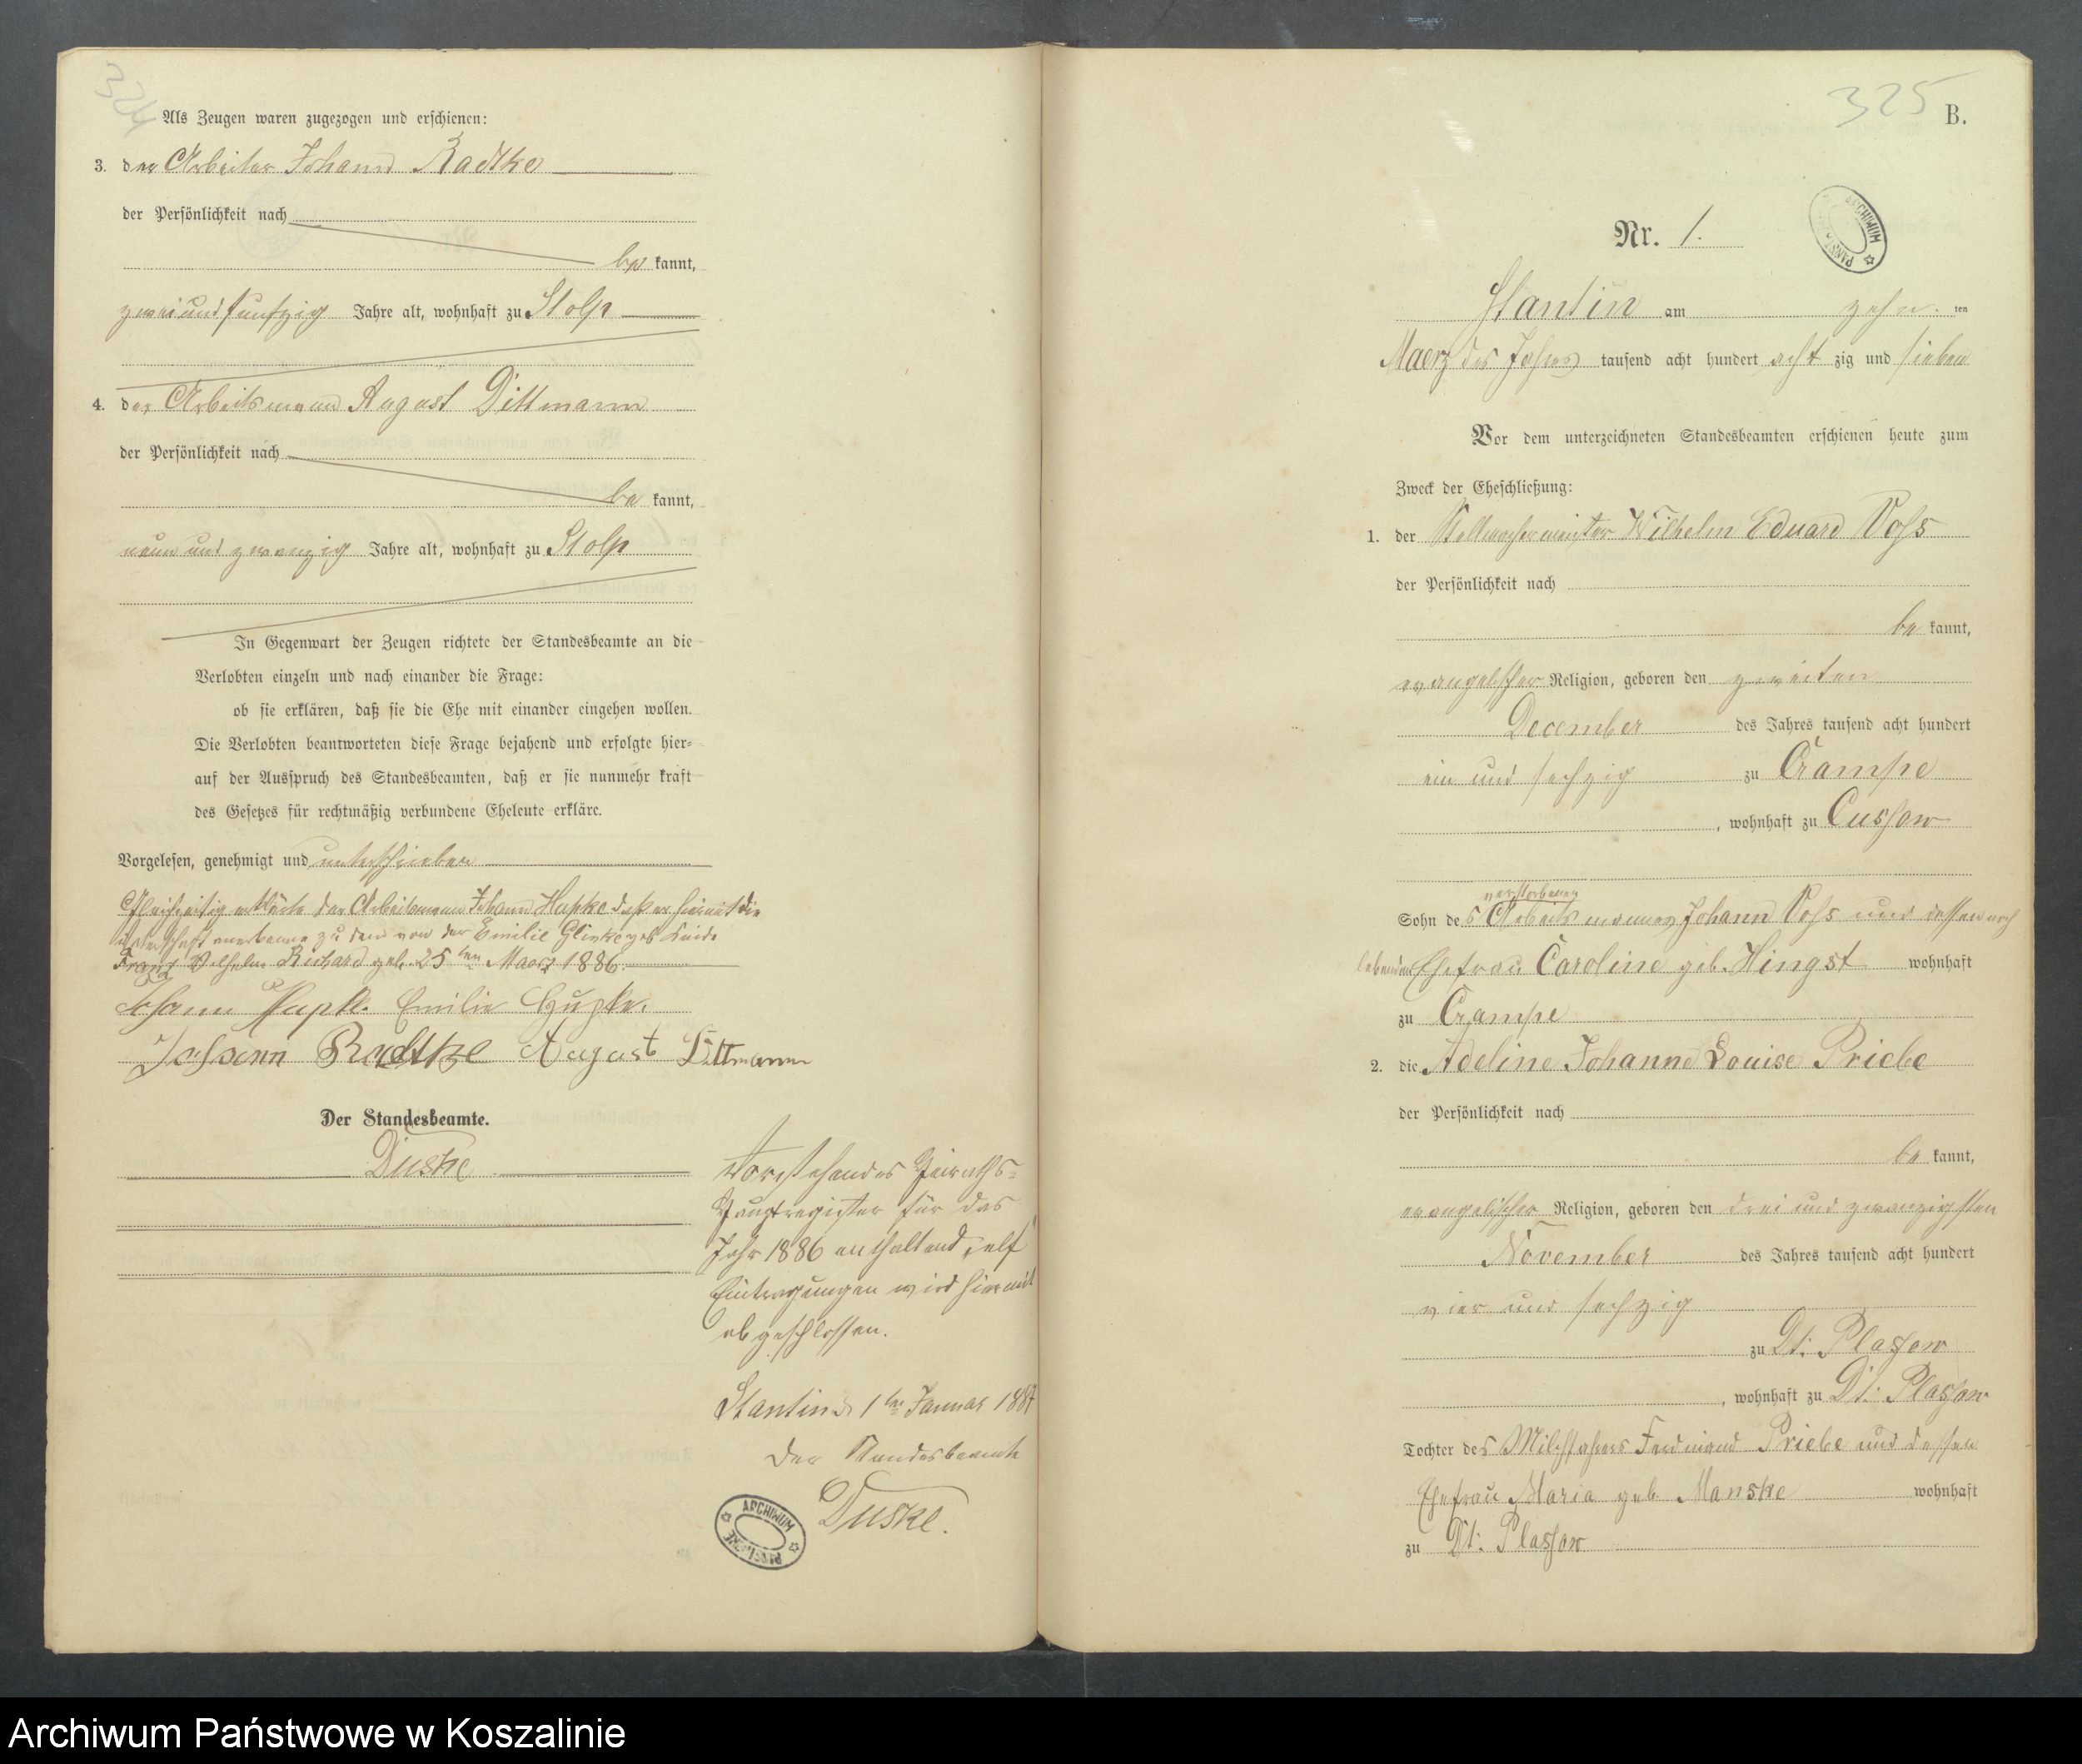 324
Als Zeugen waren zugezogen und erschienen:
3. der Arbeiter Johann Radtke
der Persönlichkeit nach
be kannt,
zwei und funfzig Jahre alt, wohnhaft zu Stolp
4. der Arbeitsmann August Dittmann
der Persönlichkeit nach
be kannt,
neun und zwanzig Jahre alt, wohnhaft zu Stolp
In Gegenwart der Zeugen richtete der Standesbeamte an die
Verlobten einzeln und nach einander die Frage:
ob sie erklären, daß sie die Ehe mit einander eingehen wollen.
Die Verlobten beantworteten diese Frage bejahend und erfolgte hier-
auf der Ausspruch des Standesbeamten, daß er sie nunmehr kraft
des Gesetzes für rechtmäßig verbundene Eheleute erkläre.
Vorgelesen, genehmigt und unterschrieben
Gleichzeitig erklärte der Arbeitsmann Johann Hapke daß er hiermit die
Vaterschaft anerkenne zu dem von der Emilie Glinke geb. Kinde
Franz Wilhelm Richard geb. 25ten Maerz 1886.
Johann Hapke. Emilie Hapke.
Johann Radtke August Dittmann
Der Standesbeamte.
Duske
Vorstehendes Heiraths-
Hauptregister für das
Jahr 1886 enthaltend elf
Eintragungen wird hiermit
abgeschlossen.
Stantin d. 1ten Januar 1887
Der Standesbeamte
Duske.
ARCHIWUM PAŃSTWOWE
325
B.
ARCHIWUM PAŃSTWOWE
Nr. 1.
Stantin am zehn ten
Maerz des Jahres tausend acht hundert acht zig und sieben
Vor dem unterzeichneten Standesbeamten erschienen heute zum
Zweck der Eheschließung:
1. der Stellmachermeister Wilhelm Eduard Voss
der Persönlichkeit nach
be kannt,
evangelischer Religion, geboren den zweiten
December des Jahres tausend acht hundert
ein und sechzig zu Crampe
, wohnhaft zu Cussow
verstorbenen
Sohn des Arbeitsmannes Johann Voss und dessen noch
lebenden Ehefrau Caroline geb. Hingst wohnhaft
zu Crampe
2. die Adeline Johanne Louise Priebe
der Persönlichkeit nach
be kannt,
evangelischer Religion, geboren den drei und zwanzigsten
November des Jahres tausend acht hundert
vier und sechzig
zu Dt: Plassow
, wohnhaft zu Dt: Plassow
Tochter des Milchfahrers Ferdinand Priebe und dessen
Ehefrau Maria geb. Manske wohnhaft
zu Dt: Plassow
Archiwum Państwowe w Koszalinie